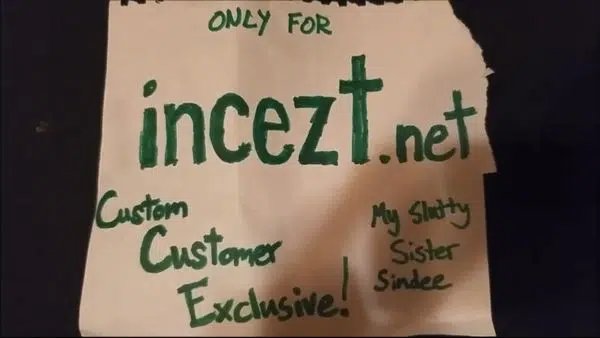 ONLY FOR
incezt.net
Custom
Customer
Exclusive!
My Slutty
Sister
Sindee